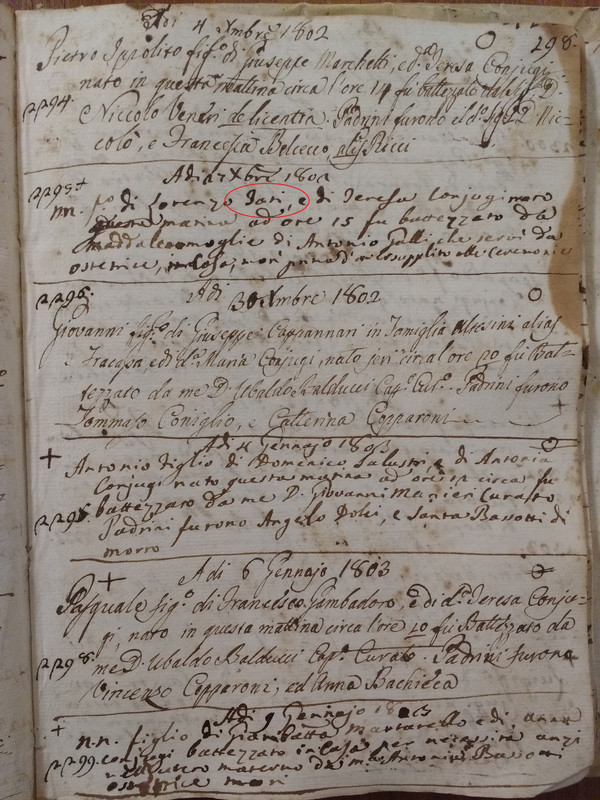 Adi 4 Xmbre 1802
298.
Pietro Ippolito fig.o di Giuseppe Marchetti, e d.a Teresa Conjugi
nato in questa mattina circa l'ore 14 fu battezzato dal
2294. Niccolò Veneri de licentia. Padrini furono il d.o Nic-
colò, e Francesca Belcecco, alias Ricci
Adi 17 Xbre 1802
2295 +
nn. f.o di Lorenzo e di Teresa Conjugi nato
questa matina ad ore 15 fu battezzato da
Maddalena moglie di Antonio Galli che servì da
ostetrice, in Casa, morì prima d' supplito alle Ceremonie
2296.
Adi 30 Xmbre 1802
Giovanni fig.o di Giuseppe Cappannari in Famiglia alias
Fracassa e di d.a Maria Conjugi nato jeri circa l'ore 20 fu bat-
tezzato da me D. Ubaldo Balducci Cap.o Cur.o. Padrini furono
Tommaso Coniglio, e Catterina Copparoni
Adi 4 Gennajo 1803
+ Antonio Figlio di Domenico Salustri, e di Antonia
Conjugi nato questa matina ad ore 12 circa fu
battezzato da me D. Giovanni Manieri Curato
Padrini furono Angelo Dolci, e Santa Bassotti di
morro
+
Adi 6 Gennajo 1803
Pasquale fig.o di Francesco Gambadoro, e di d.a Teresa Conju-
gi, nato in questa mattina circa l'ore 10 fu Battezzato da
2298. me D. Ubaldo Balducci Cap.o Curato. Padrini furono
Vincenzo Copparoni, ed Anna Bachieca
+
Adi 9 Gennajo 1803
n.n. figlio di Giambatta Martarello e di Anna
2299. Conjugi battezzato in Casa per necessità anzi
materno da me Antonia
ostetrice morì